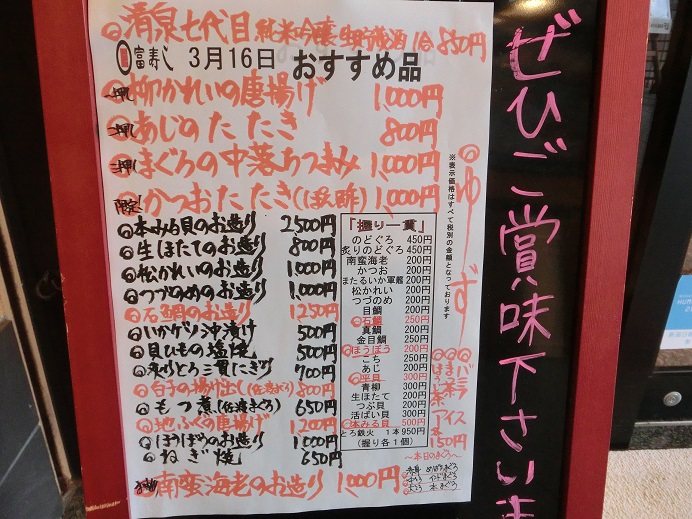 清泉七代目 純米吟醸 生貯蔵酒 1合 850円
富寿し 3月16日 おすすめ品
一押し 柳かれいの唐揚げ 1,000円
一押し あじのたたき 800円
二押し まぐろの中落ちつまみ 1,000円
限定! かつおたたき(ぽん酢) 1,000円
本みる貝のお造り 2500円
生ほたてのお造り 800円
松かれいのお造り 1,000円
つづのめのお造り 1,000円
石鯛のお造り 1250円
いかゲソ沖漬け 500円
貝ひもの塩焼 500円
炙りとろ三貫にぎり 700円
白子の揚げ出し(佐渡まだら) 800円
もつ煮(佐渡まぐろ) 650円
地ふぐ唐揚げ 1,200円
ほうぼうのお造り 1,000円
ねぎ焼 650円
南蛮海老のお造り 1,000円
「握り一貫」
のどぐろ 450円
炙りのどぐろ 450円
南蛮海老 200円
かつお 200円
ほたるいか軍艦 200円
松かれい 200円
つづのめ 200円
目鯛 200円
石鯛 250円
真鯛 200円
金目鯛 250円
ほうぼう 200円
こち 250円
あじ 200円
平貝 300円
青柳 200円
生ほたて 200円
つぶ貝 200円
活ばい貝 300円
本みる貝 500円
とろ鉄火 1本950円
(握り各1個)
~本日のまぐろ~
赤身 めばちまぐろ
中とろ
とろ 本まぐろ
※表示価格はすべて税別の金額となっております
ゆず
バニラ
アイス
各150円
ぜひご賞味下さいま